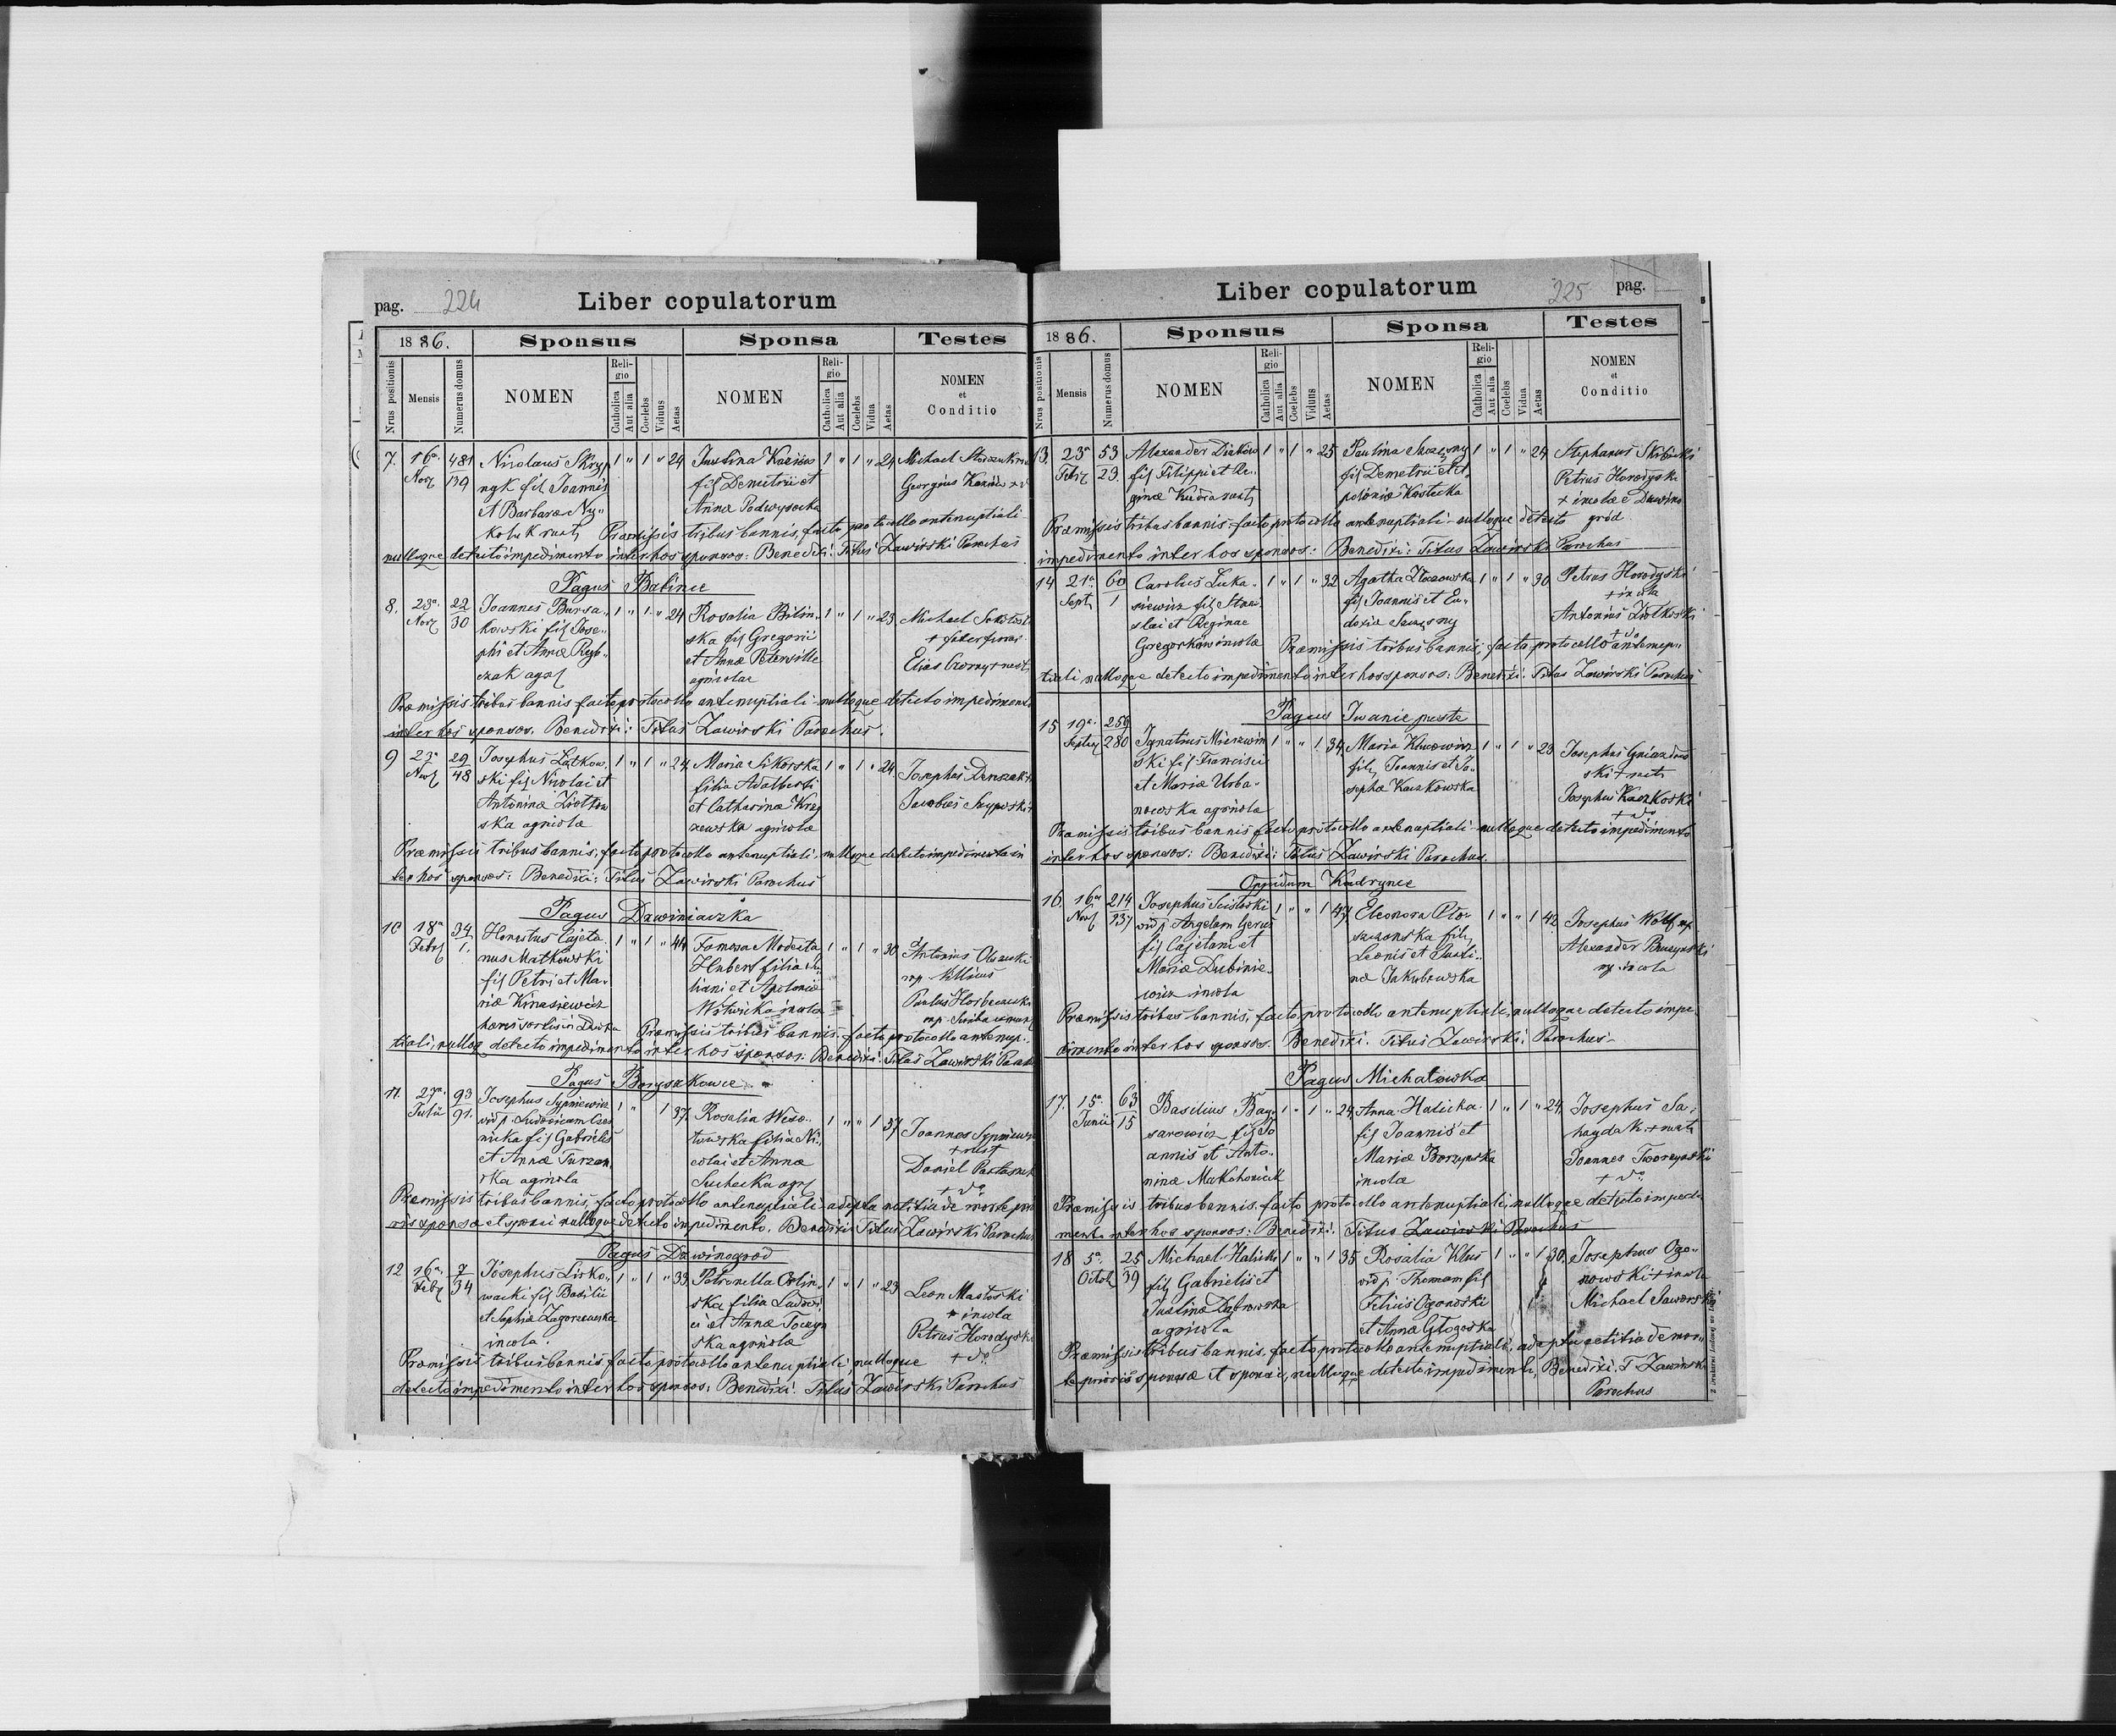 pag. 224
Liber copulatorum
1886.
Sponsus
Sponsa
Testes
Nrus positionis
Mensis
Numerus domus
NOMEN
Religio
Catholica
Aut alia
Coelebs
Viduus
Aetas
NOMEN
Religio
Catholica
Aut alia
Coelebs
Vidua
Aetas
NOMEN
et
Conditio
7. 16a Nov 481 139
Nicolaus Skryp
nyk fil Joannis
et Barbara Ny-
koluk rust
1 " 1 " 24
Justina Kaziów
fil Demitrii et
Anna Podwysocka
1 " 1 " 24
Michael
Georgius
Praemissis tribus bannis, facto protocollo antenuptiali
nulloque detecto impedimento inter hos sponsos: Benedixi: Titus Zawirski Parochus
Pagus Babince
8. 23a Nov 22 30
Joannes Bursa-
kowski fil Jose-
phi et Anna
czak agr
1 " 1 " 24
Rosalia Bilin-
ska fil Gregorii
et Anna
agricolae
1 " 1 " 23
Michael
+
Elias Czorny + rust
Praemissis tribus bannis facto protocollo antenuptiali nulloque detecto impedimento
inter hos sponsos. Benedixi: Titus Zawirski Parochus.
9 23a Nov 29 48
Josephus Latkow-
ski fil Nicolai et
Antonina Ziolkow
ska agricola
1 " 1 " 24
Maria Sikorska
filia Adalberti
et Catharina Krzy
zewska agricola
1 " 1 " 24
Josephus
Jacobus
Praemissis tribus bannis, facto protocollo antenuptiali nulloque detecto impedimento in
ter hos sponsos: Benedixi: Titus Zawirski Parochus
Pagus Dzwiniaczka
10 18a Febr 34 1.
Honestus Cajeta-
nus Matkowski
fil Petri et Ma-
ria Kinasiewicz
1 " 1 " 44
Famosa Modesta
Hubert filia Ju-
liani et Apolonia
Wotwicka incola
1 " 1 " 30
Antonius
mp Villicus
Paulus
mp. Scriba
Praemissis tribus bannis facto protocollo antenup-
tiali, nulloq detecto impedimento inter hos sponsos: Benedixi: Titus Zawirski Paroch
Pagus Boryszkowce
11. 27a Julii 93 91.
Josephus Sypniewicz
vid p. Ludovicam Czer
nicka fil Gabrielis
et Anna Turzan
ska agricola
1 " 1 37
Rosalia Weso-
towska filia Ni-
colai et Anna
Suchecka agr
1 " " 1 37
Joannes Sypniewicz
+ rust
Daniel
+ do
Praemissis tribus bannis, facto protocollo antenuptiali adepta notitia de morte prio
ris sponsae et sponsi nulloque detecto impedimento. Benedixi Titus Zawirski Parochus
Pagus Dzwinogrod
12 16a Febr 7 34
Josephus Lisko-
wacki fil Basilii
et Sophia Zagorzewska
incola.
1 " 1 " 39
Petronella Orlin-
ska filia Ludovi-
ci et Anna Toczyn
ska agricola
1 " 1 " 23
Leon Mastoski
+ incola
Petrus Horodyski
+ do
Praemissis tribus bannis, facto protocollo antenuptiali, nulloque
detecto impedimento inter hos sponsos: Benedixi. Titus Zawirski Parochus
Liber copulatorum
225 pag.
1886.
Sponsus
Sponsa
Testes
Nrus positionis
Mensis
Numerus domus
NOMEN
Religio
Catholica
Aut alia
Coelebs
Viduus
Aetas
NOMEN
Religio
Catholica
Aut alia
Coelebs
Vidua
Aetas
NOMEN
et
Conditio
13. 23a Febr 53 23.
Alexander Diaków
fil Filippi et Re-
gina Kudra rust
1 " 1 " 25
Paulina Szczęsny
fil Demetrii et A
polonia Kostecka
1 " 1 " 24
Stephanus Skibicki
Petrus Horodyski
+ incolae Dzwino
gród
Praemissis tribus bannis, facto protocollo antenuptiali nulloque detecto
impedimento inter hos sponsos: Benedixi: Titus Zawirski Parochus
14 21a Sept 60 1
Carolus Luka-
siewicz fil Stani-
slai et Reginae
Gregorków incola
1 " 1 " 32
Agatha Ztoczowska
fil Joannis et Eu-
doxia Szczęsny
1 " 1 " 30
Petrus Horodyski
+ incola
Antonius Ziolkoski
+ do
Praemissis tribus bannis, facto protocollo antenup-
tiali nulloque detecto impedimento inter hos sponsos: Benedixi: Titus Zawirski Parochus
Pagus Iwanie puste
15 19a Septr 259 280
Ignatius Mierzwin
ski fil Francisci
et Maria Urba-
nowska agricola
1 " " 1 34
Maria Klucewicz
fil Joannis et Jo-
sepha Kaczkowska
1 " 1 " 23
Josephus Gniazdow
ski + rust
Josephus Kaczkoski
+ do
Praemissis tribus bannis facto protocollo antenuptiali nulloque detecto impedimento
inter hos sponsos: Benedixi: Titus Zawirski Parochus.
Oppidum Kudrynce
16. 16a Nov 214 237
Josephus Scisloski
vid p. Angelam Gerus
fil Cajetani et
Maria Dubinie-
wicz incola
1 " " 1 47
Eleonora Oto-
szczanska fil
Leonis et Justi-
na Jakubowska
1 " " 1 42
Josephus Wolf mp
Alexander Buczynski
mp incola
Praemissis tribus bannis, facto protocollo antenuptiali, nulloque detecto impe-
dimento inter hos sponsos. Benedixi. Titus Zawirski: Parochus.
Pagus Michałowka
17. 15a Junii 63 15
Basilius Bay-
sarowicz fil Jo
annis et Anto-
nina Makohonick
1 " 1 " 24
Anna Halicka
fil Joannis et
Maria Borzynska
incola
1 " 1 " 24
Josephus Sa-
hayda + rust
Joannes Tworzynski
+ do
Praemissis tribus bannis facto protocollo antenuptiali, nulloque detecto impedi-
mento inter hos sponsos: Benedixi. Titus Zawirski Parochus
18 5a Octob 25 39
Michael Halicki
fil Gabrielis et
Justina Dąbrowska
agricola
1 " " 1 35
Rosalia Klus
vid p. Thomam fil
Felicis Ogonoski
et Anna Głogoska
1 " " 1 30.
Josephus Ogo-
nowski + incola
Michael Jaworski
Praemissis tribus bannis, facto protocollo antenuptiali, adepta notitia de mor-
te prioris sponsae et sponsi, nulloque detecto impedimento, Benedixi. T Zawirski
Parochus